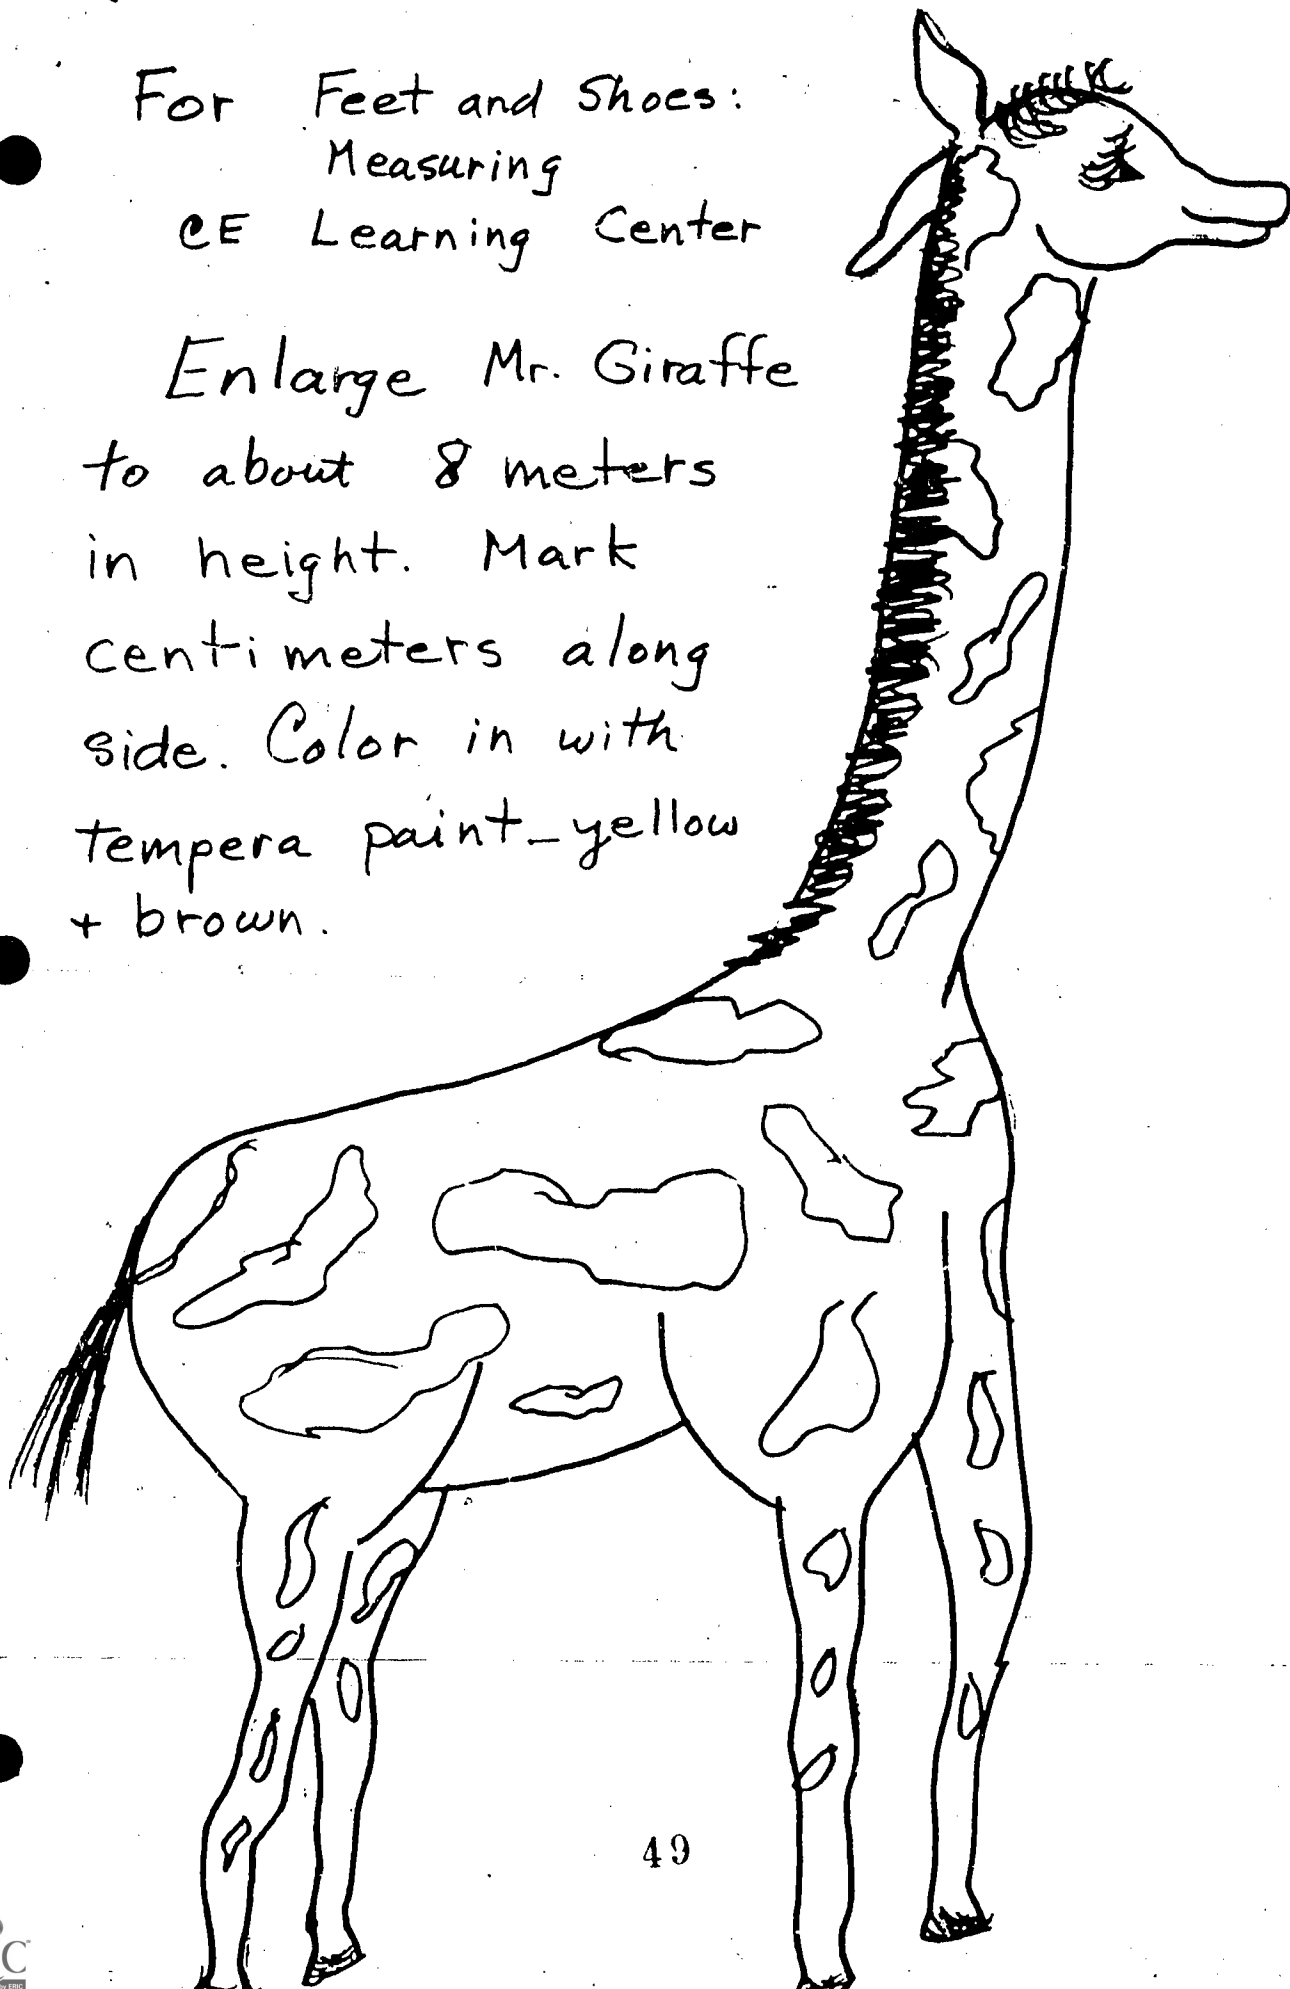 For Feet and Shoes:
Measuring
CE Learning Center
Enlarge Mr. Giraffe
to about 8 meters
in height. Mark
centimeters along
side. Color in with
tempera paint - yellow
+ brown.
49
C
by ERIC